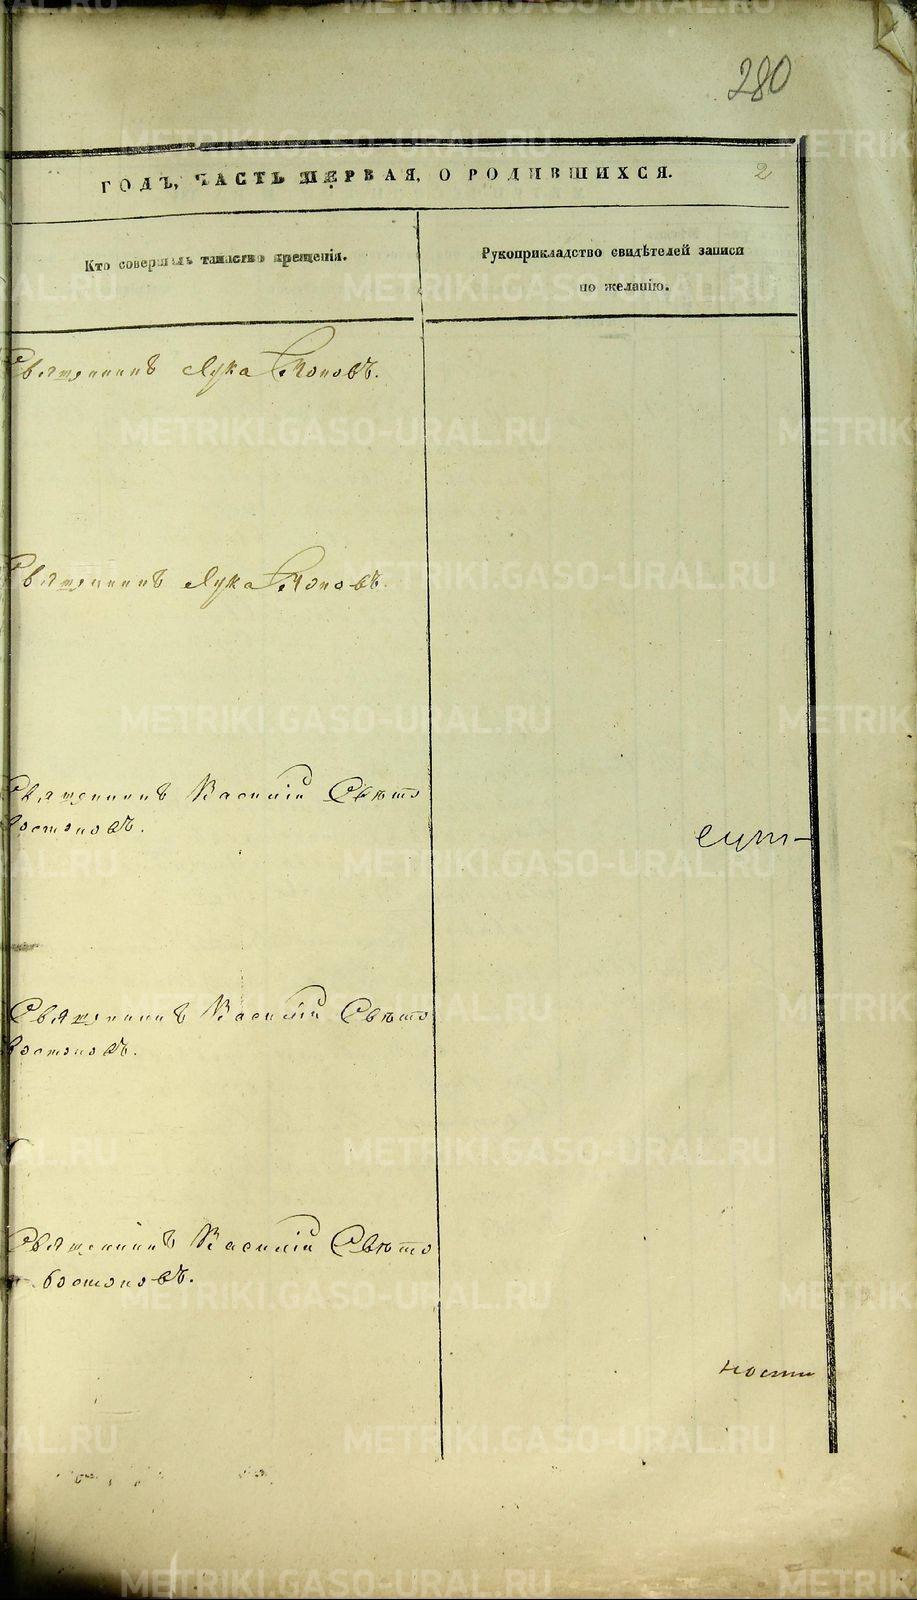 280
ГОДЪ, ЧАСТЬ ПЕРВАЯ, О РОДИВШИХСЯ. 2
Кто совершалъ таинство крещенія.
Рукоприкладство свидѣтелей записи
по желанію.
Священникъ Лука Поповъ.
Священникъ Лука Поповъ.
Священникъ Василій Свѣто
востоковъ.
Священникъ Василій Свѣто
востоковъ.
Священникъ Василій Свѣто
востоковъ.
ности
METRIKI.GASO-URAL.RU